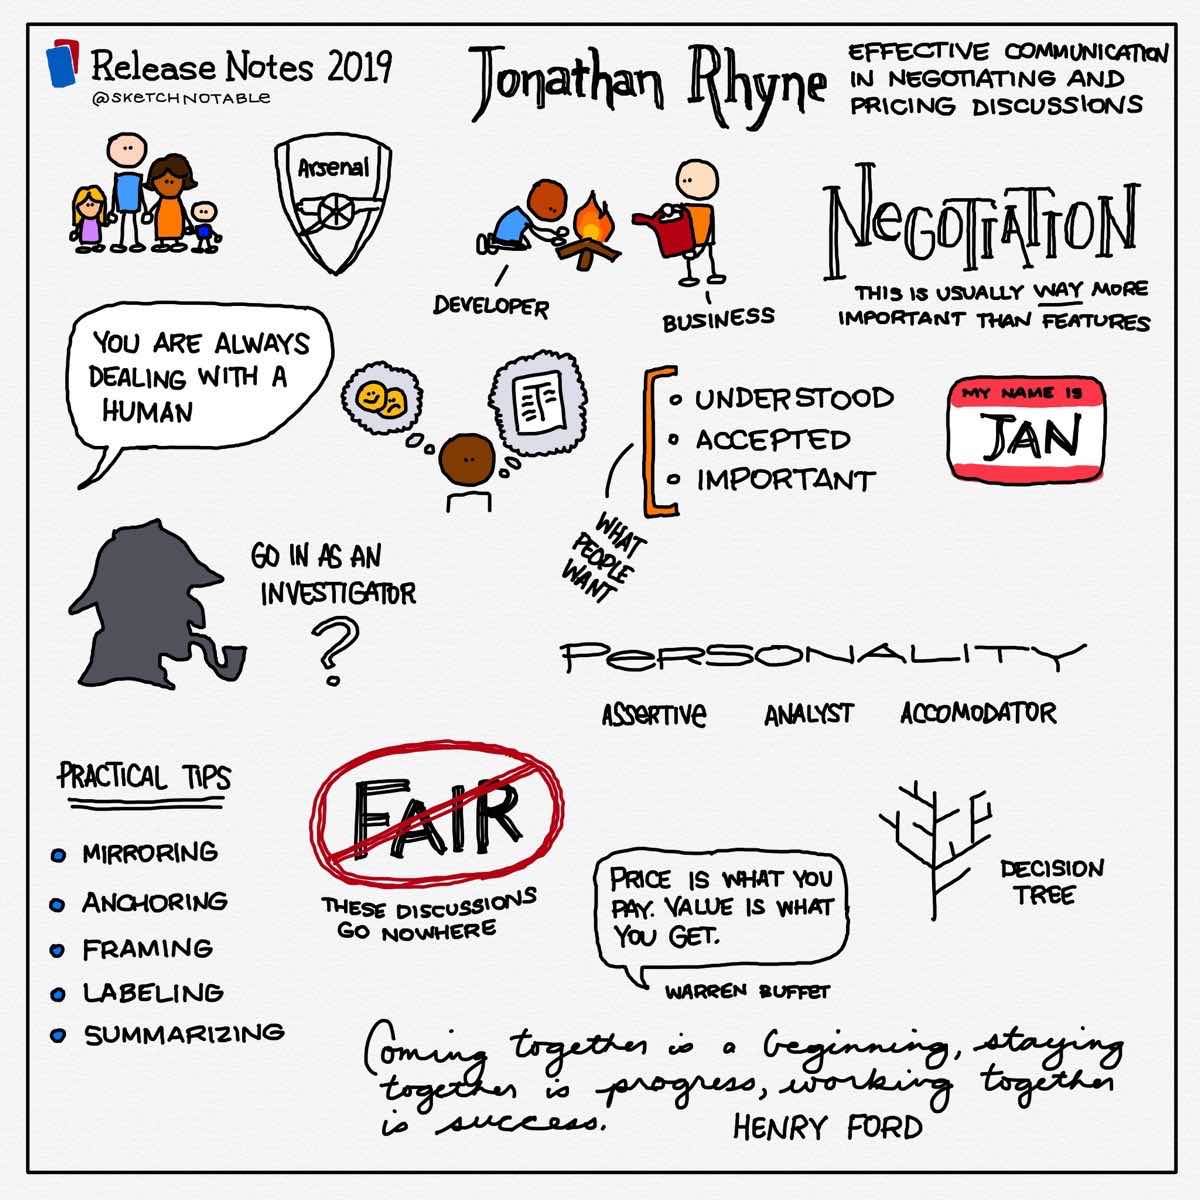 Release Notes 2019
@SKETCHNOTABLE
Jonathan Rhyne
EFFECTIVE COMMUNICATION
IN NEGOTIATING AND
PRICING DISCUSSIONS
Arsenal
DEVELOPER
BUSINESS
NEGOTIATION
THIS IS USUALLY WAY MORE
IMPORTANT THAN FEATURES
YOU ARE ALWAYS
DEALING WITH A
HUMAN
T
WHAT
PEOPLE
WANT
• UNDERSTOOD
• ACCEPTED
• IMPORTANT
MY NAME IS
JAN
GO IN AS AN
INVESTIGATOR
?
PERSONALITY
ASSERTIVE ANALYST ACCOMODATOR
PRACTICAL TIPS
• MIRRORING
• ANCHORING
• FRAMING
• LABELING
• SUMMARIZING
FAIR
THESE DISCUSSIONS
GO NOWHERE
PRICE IS WHAT YOU
PAY. VALUE IS WHAT
YOU GET.
WARREN BUFFET
DECISION
TREE
Coming together is a beginning, staying
together is progress, working together
is success.
HENRY FORD